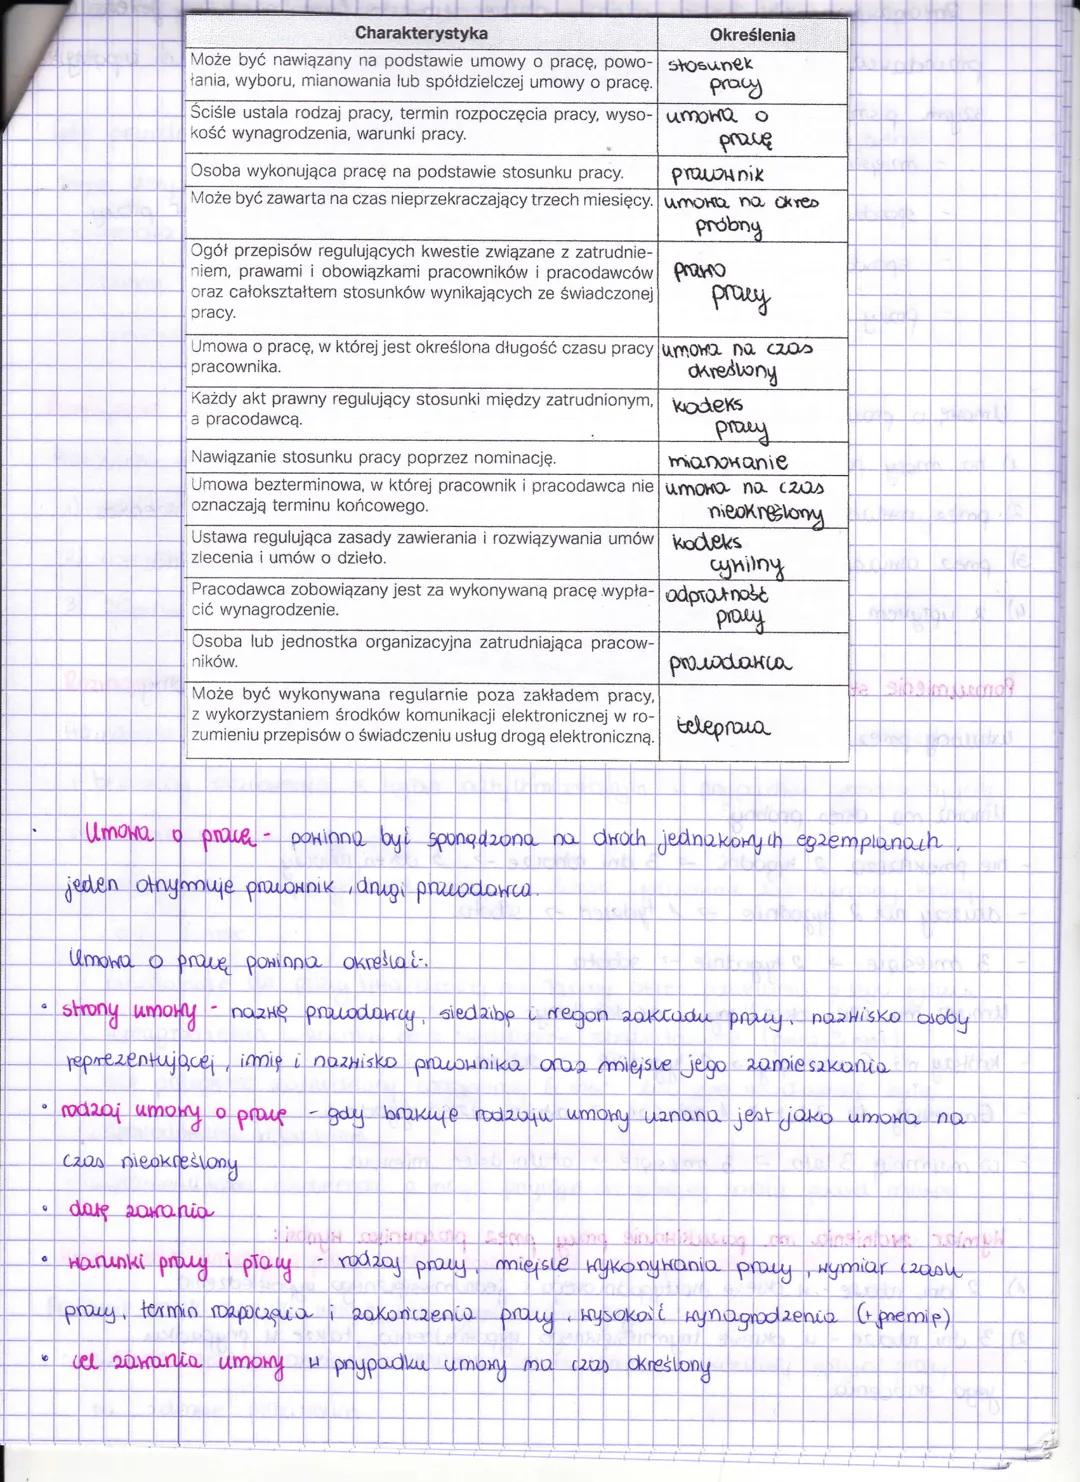 Charakterystyka
Określenia
Może być nawiązany na podstawie umowy o pracę, powo-
łania, wyboru, mianowania lub spółdzielczej umowy o pracę.
stosunek
pracy
Ściśle ustala rodzaj pracy, termin rozpoczęcia pracy, wyso-
kość wynagrodzenia, warunki pracy.
umowa o
pracę
Osoba wykonująca pracę na podstawie stosunku pracy.
pracownik
Może być zawarta na czas nieprzekraczający trzech miesięcy.
umowa na okres
próbny
Ogół przepisów regulujących kwestie związane z zatrudnie-
niem, prawami i obowiązkami pracowników i pracodawców
oraz całokształtem stosunków wynikających ze świadczonej
pracy.
prawo
pracy
Umowa o pracę, w której jest określona długość czasu pracy
pracownika.
umowa na czas
określony
Każdy akt prawny regulujący stosunki między zatrudnionym,
a pracodawcą.
kodeks
pracy
Nawiązanie stosunku pracy poprzez nominację.
mianowanie
Umowa bezterminowa, w której pracownik i pracodawca nie
oznaczają terminu końcowego.
umowa na czas
nieokreślony
Ustawa regulująca zasady zawierania i rozwiązywania umów
zlecenia i umów o dzieło.
kodeks
cywilny
Pracodawca zobowiązany jest za wykonywaną pracę wypła-
cić wynagrodzenie.
odpłatność
pracy
Osoba lub jednostka organizacyjna zatrudniająca pracow-
ników.
pracodawca
Może być wykonywana regularnie poza zakładem pracy,
z wykorzystaniem środków komunikacji elektronicznej w ro-
zumieniu przepisów o świadczeniu usług drogą elektroniczną.
telepraca
Umowa o pracę - powinna być sporządzona na dwóch jednakowych egzemplarzach,
jeden otrzymuje pracownik, drugi pracodawca.
Umowa o pracę powinna określać:
• strony umowy - nazwę pracodawcy, siedzibę i regon zakładu pracy, nazwisko osoby
reprezentującej, imię i nazwisko pracownika oraz miejsce jego zamieszkania
• rodzaj umowy o pracę - gdy brakuje rodzaju umowy uznana jest jako umowa na
czas nieokreślony
• datę zawarcia
• warunki pracy i płacy - rodzaj pracy, miejsce wykonywania pracy, wymiar czasu
pracy, termin rozpoczęcia i zakończenia pracy, wysokość wynagrodzenia (+premie)
• cel zawarcia umowy w przypadku umowy na czas określony